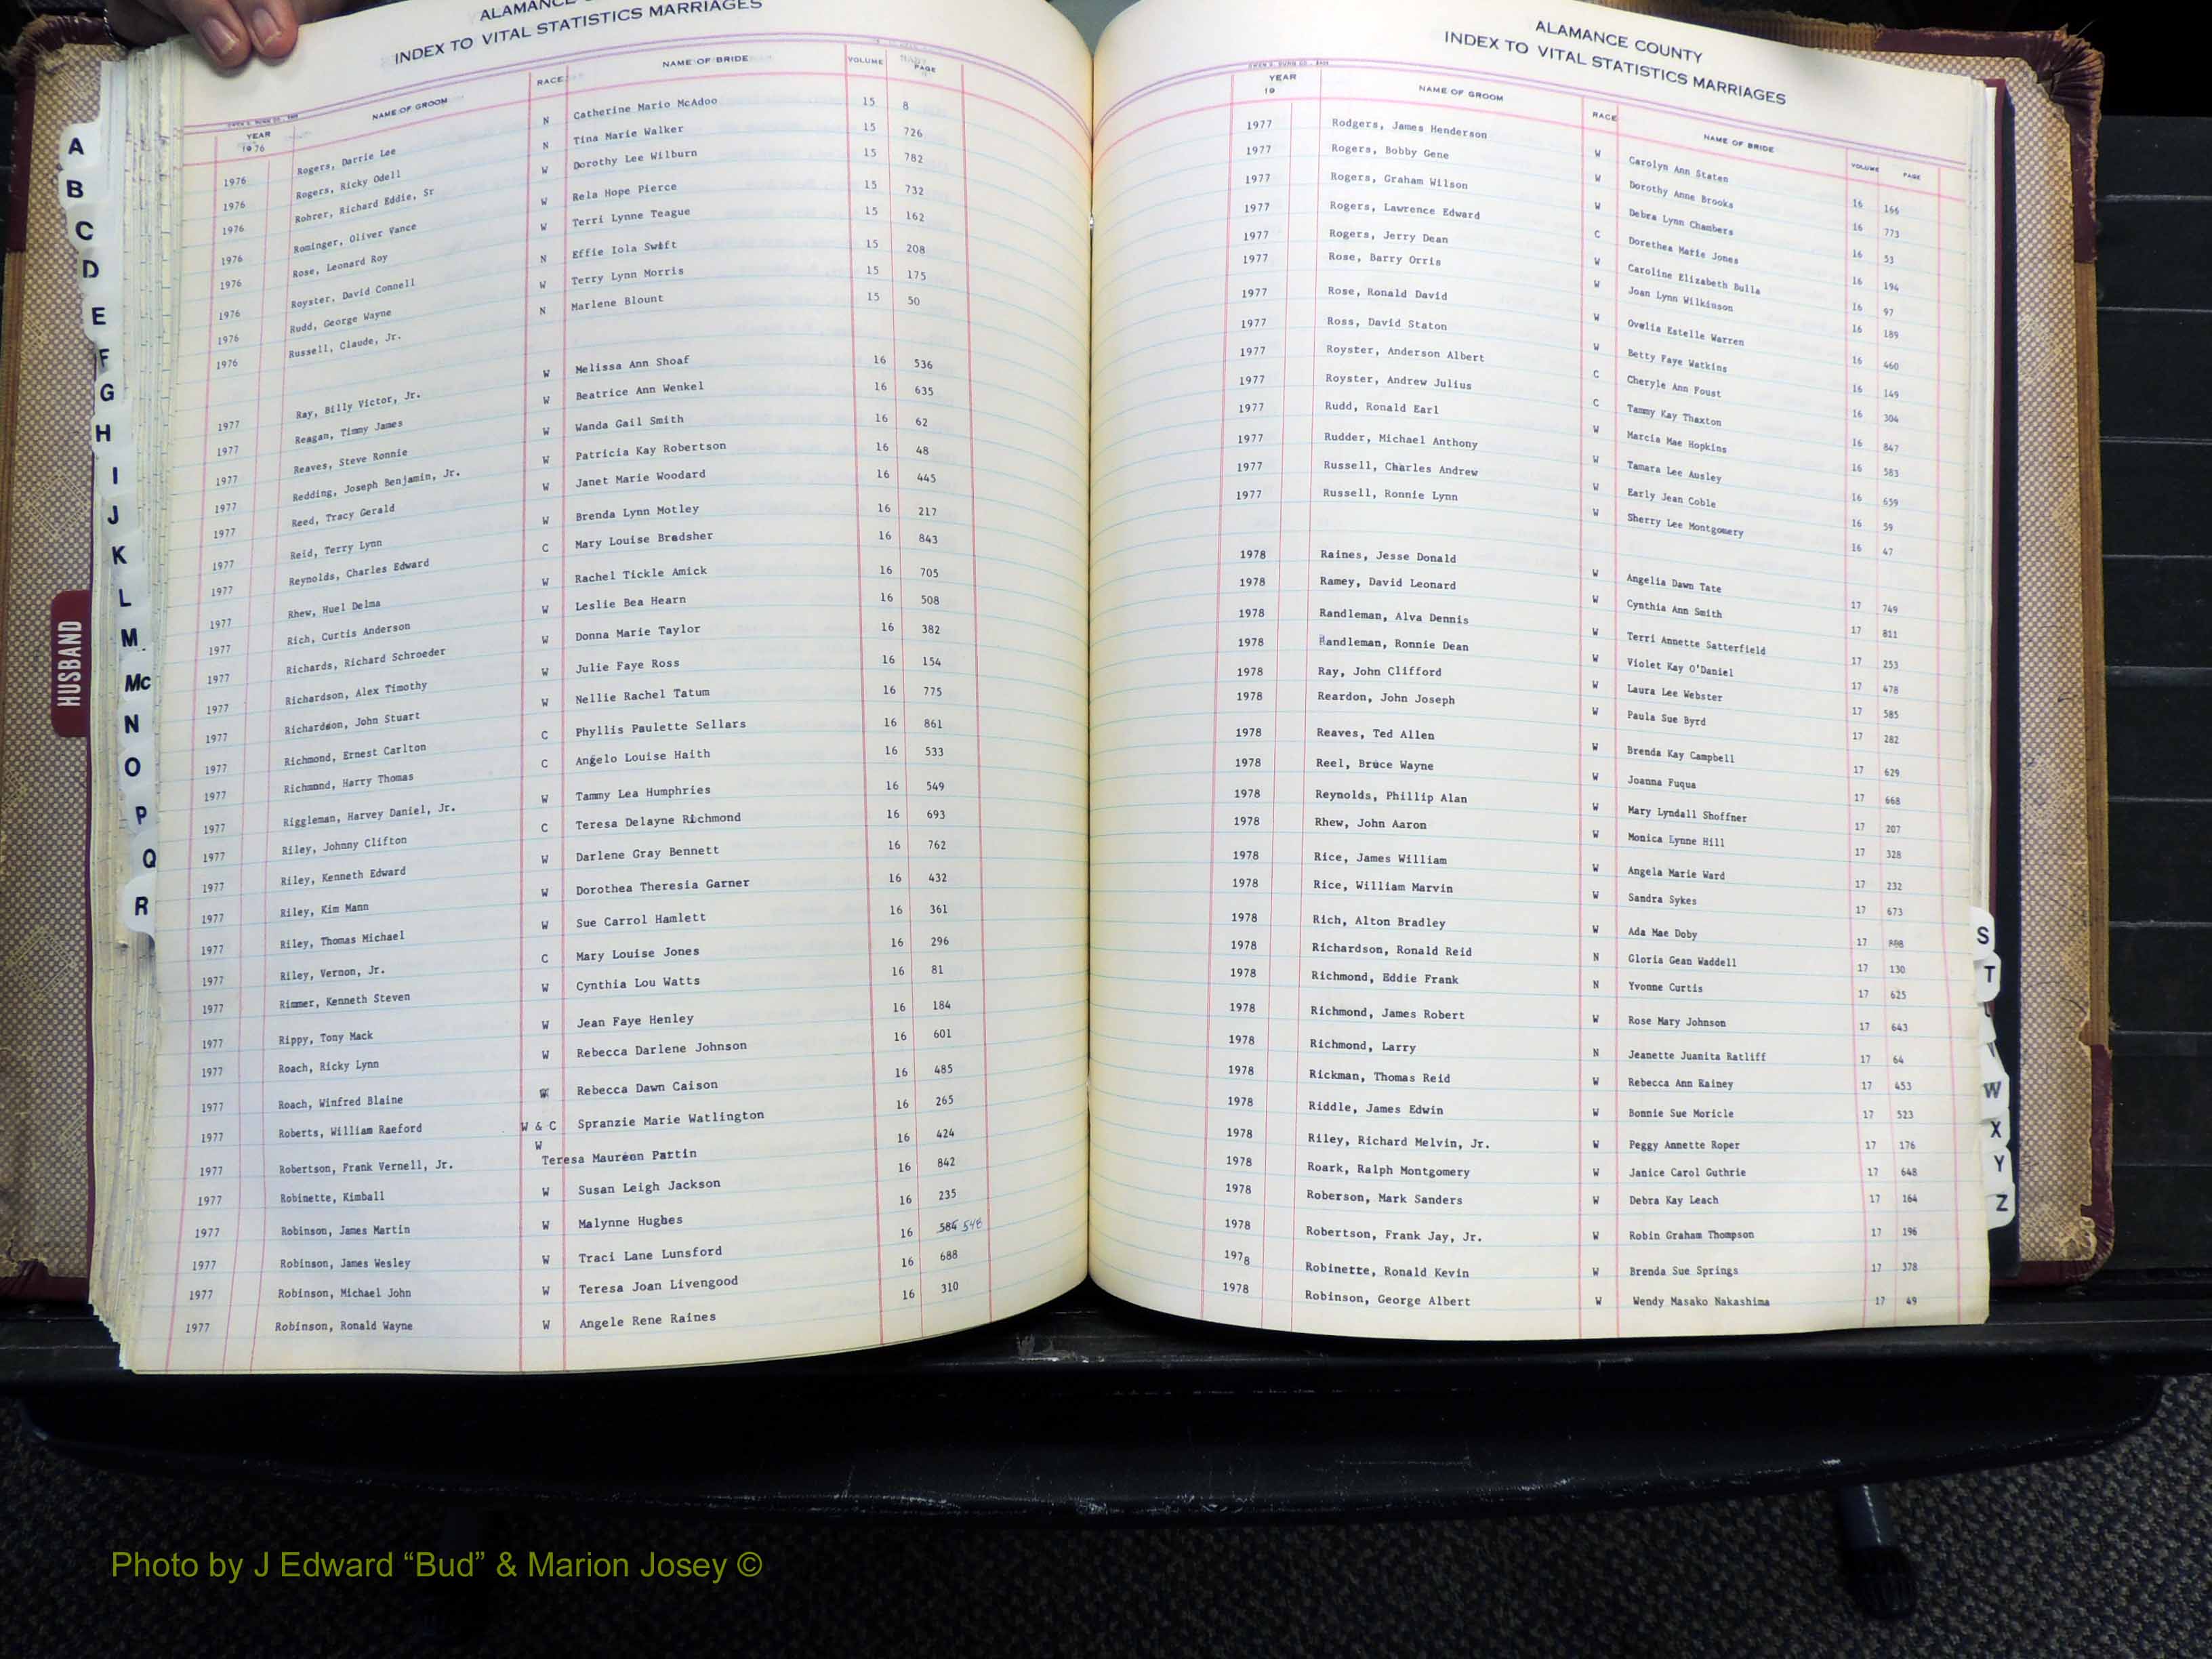 INDEX TO VITAL STATISTICS MARRIAGES
YEAR 1976 NAME OF GROOM RACE NAME OF BRIDE VOLUME PAGE
1976 Rogers, Darrie Lee N Catherine Mario McAdoo 15 8
1976 Rogers, Ricky Odell N Tina Marie Walker 15 726
1976 Rohrer, Richard Eddie, Sr W Dorothy Lee Wilburn 15 782
1976 Rominger, Oliver Vance W Rela Hope Pierce 15 732
1976 Rose, Leonard Roy W Terri Lynne Teague 15 162
1976 Royster, David Connell N Effie Iola Swift 15 208
1976 Rudd, George Wayne W Terry Lynn Morris 15 175
1976 Russell, Claude, Jr. N Marlene Blount 15 50
1977 Ray, Billy Victor, Jr. W Melissa Ann Shoaf 16 536
1977 Reagan, Timmy James W Beatrice Ann Wenkel 16 635
1977 Reaves, Steve Ronnie W Wanda Gail Smith 16 62
1977 Redding, Joseph Benjamin, Jr. W Patricia Kay Robertson 16 48
1977 Reed, Tracy Gerald W Janet Marie Woodard 16 445
1977 Reid, Terry Lynn W Brenda Lynn Motley 16 217
1977 Reynolds, Charles Edward C Mary Louise Bradsher 16 843
1977 Rhew, Huel Delma W Rachel Tickle Amick 16 705
1977 Rich, Curtis Anderson W Leslie Bea Hearn 16 508
1977 Richards, Richard Schroeder W Donna Marie Taylor 16 382
1977 Richardson, Alex Timothy W Julie Faye Ross 16 154
1977 Richardson, John Stuart W Nellie Rachel Tatum 16 775
1977 Richmond, Ernest Carlton C Phyllis Paulette Sellars 16 861
1977 Richmond, Harry Thomas C Angelo Louise Haith 16 533
1977 Riggleman, Harvey Daniel, Jr. W Tammy Lea Humphries 16 549
1977 Riley, Johnny Clifton C Teresa Delayne Richmond 16 693
1977 Riley, Kenneth Edward W Darlene Gray Bennett 16 762
1977 Riley, Kim Mann W Dorothea Theresia Garner 16 432
1977 Riley, Thomas Michael W Sue Carrol Hamlett 16 361
1977 Riley, Vernon, Jr. C Mary Louise Jones 16 296
1977 Rimmer, Kenneth Steven W Cynthia Lou Watts 16 81
1977 Rippy, Tony Mack W Jean Faye Henley 16 184
1977 Roach, Ricky Lynn W Rebecca Darlene Johnson 16 601
1977 Roach, Winfred Blaine W Rebecca Dawn Caison 16 485
1977 Roberts, William Raeford W & C Spranzie Marie Watlington 16 265
1977 Robertson, Frank Vernell, Jr. W Teresa Maureen Partin 16 424
1977 Robinette, Kimball W Susan Leigh Jackson 16 842
1977 Robinson, James Martin W Malynne Hughes 16 235
1977 Robinson, James Wesley W Traci Lane Lunsford 16 584 548
1977 Robinson, Michael John W Teresa Joan Livengood 16 688
1977 Robinson, Ronald Wayne W Angele Rene Raines 16 310
ALAMANCE COUNTY
INDEX TO VITAL STATISTICS MARRIAGES
YEAR 19 NAME OF GROOM RACE NAME OF BRIDE VOLUME PAGE
1977 Rodgers, James Henderson W Carolyn Ann Staten 16 166
1977 Rogers, Bobby Gene W Dorothy Anne Brooks 16 773
1977 Rogers, Graham Wilson W Debra Lynn Chambers 16 53
1977 Rogers, Lawrence Edward C Dorethea Marie Jones 16 194
1977 Rogers, Jerry Dean W Caroline Elizabeth Bulla 16 97
1977 Rose, Barry Orris W Joan Lynn Wilkinson 16 189
1977 Rose, Ronald David W Ovelia Estelle Warren 16 460
1977 Ross, David Staton W Betty Faye Watkins 16 149
1977 Royster, Anderson Albert C Cheryle Ann Foust 16 304
1977 Royster, Andrew Julius C Tammy Kay Thaxton 16 847
1977 Rudd, Ronald Earl W Marcia Mae Hopkins 16 583
1977 Rudder, Michael Anthony W Tamara Lee Ausley 16 659
1977 Russell, Charles Andrew W Early Jean Coble 16 59
1977 Russell, Ronnie Lynn W Sherry Lee Montgomery 16 47
1978 Raines, Jesse Donald W Angelia Dawn Tate 17 749
1978 Ramey, David Leonard W Cynthia Ann Smith 17 811
1978 Randleman, Alva Dennis W Terri Annette Satterfield 17 253
1978 Randleman, Ronnie Dean W Violet Kay O'Daniel 17 478
1978 Ray, John Clifford W Laura Lee Webster 17 585
1978 Reardon, John Joseph W Paula Sue Byrd 17 282
1978 Reaves, Ted Allen W Brenda Kay Campbell 17 629
1978 Reel, Bruce Wayne W Joanna Fuqua 17 668
1978 Reynolds, Phillip Alan W Mary Lyndall Shoffner 17 207
1978 Rhew, John Aaron W Monica Lynne Hill 17 328
1978 Rice, James William W Angela Marie Ward 17 232
1978 Rice, William Marvin W Sandra Sykes 17 673
1978 Rich, Alton Bradley W Ada Mae Doby 17
1978 Richardson, Ronald Reid N Gloria Gean Waddell 17 130
1978 Richmond, Eddie Frank N Yvonne Curtis 17 625
1978 Richmond, James Robert W Rose Mary Johnson 17 643
1978 Richmond, Larry N Jeanette Juanita Ratliff 17 64
1978 Rickman, Thomas Reid W Rebecca Ann Rainey 17 453
1978 Riddle, James Edwin W Bonnie Sue Moricle 17 523
1978 Riley, Richard Melvin, Jr. W Peggy Annette Roper 17 176
1978 Roark, Ralph Montgomery W Janice Carol Guthrie 17 648
1978 Roberson, Mark Sanders W Debra Kay Leach 17 164
1978 Robertson, Frank Jay, Jr. W Robin Graham Thompson 17 196
1978 Robinette, Ronald Kevin W Brenda Sue Springs 17 378
1978 Robinson, George Albert W Wendy Masako Nakashima 17 49
A
B
C
D
E
F
G
H
I
J
K
L
M
Mc
N
O
P
Q
R
HUSBAND
S
T
W
X
Y
Z
Photo by J Edward “Bud” & Marion Josey ©